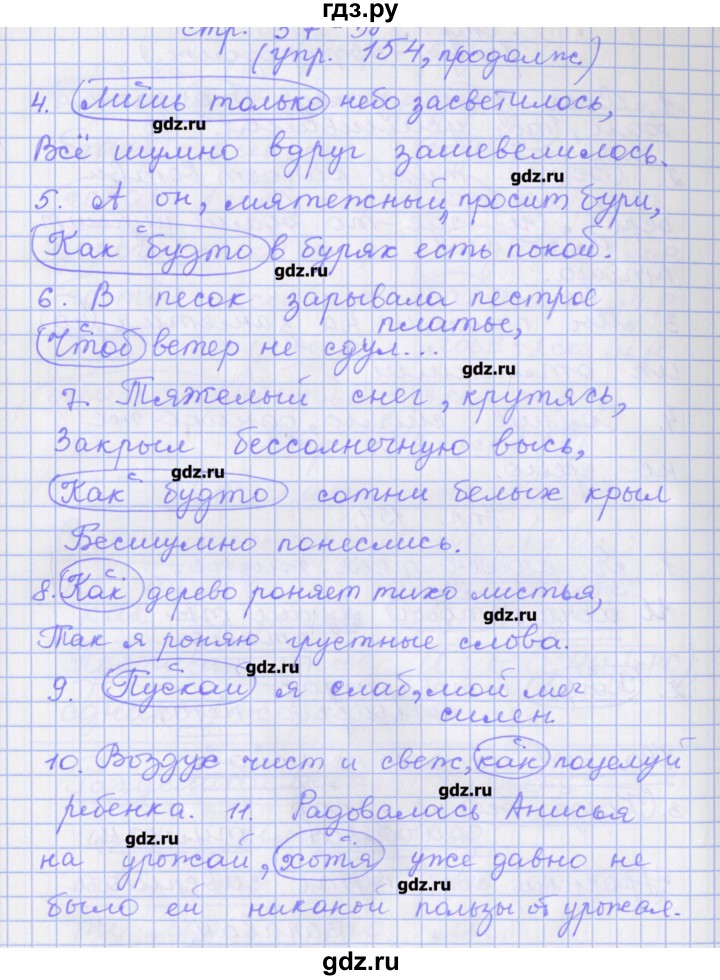 гдз.ру
стр. 37-38
(упр. 154, продолж.)
4. Лишь только небо засветилось,
gdz.ru
Всё шумно вдруг зашевелилось.
gdz.ru
5. А он, мятежный, просит бури,
Как будто в бурях есть покой.
gdz.ru
6. В песок зарывала пестрое
платье,
Чтоб ветер не сдул...
gdz.ru
7. Тяжелый снег, крутясь,
Закрыл бессолнечную высь,
gdz.ru
Как будто сотни белых крыл
Бесшумно понеслись.
8. Как дерево роняет тихо листья,
gdz.ru
Так я роняю грустные слова.
gdz.ru
9. Пускай я слаб, мой меч
силен.
10. Воздух чист и свеж, как поцелуй
gdz.ru
ребенка. 11. Радовалась Анисья
gdz.ru
на урожай, хотя уже давно не
gdz.ru
было ей никакой пользы от урожая.
gdz.ru